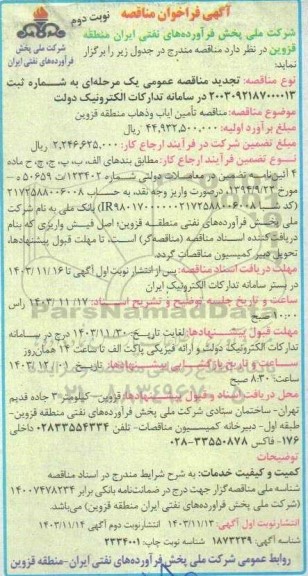 آگهی فراخوان مناقصه
نوبت دوم
شرکت ملی پخش فرآورده‌های نفتی ایران منطقه
قزوین در نظر دارد مناقصه مندرج در جدول زیر را برگزار
نماید:
شرکت ملی پخش
فرآورده‌های نفتی ایران
نوع مناقصه: تجدید مناقصه عمومی یک مرحله‌ای به شماره ثبت
۲۰۰۳۰۹۲۱۸۷۰۰۰۰۱۳ در سامانه تدارکات الکترونیک دولت
موضوع مناقصه: مناقصه تأمین ایاب وذهاب منطقه قزوین
مبلغ برآورد اولیه: ۴۴,۹۳۲,۵۰۰,۰۰۰ ریال
مبلغ تضمین شرکت در فرآیند ارجاع کار: ۲,۲۴۶,۶۲۵,۰۰۰ ریال
نوع تضمین فرآیند ارجاع کار: مطابق بندهای الف، ب، پ، ج، چ، ح ماده
۴ آئین‌نامه تضمین در معاملات دولتی شماره ۱۲۳۴۰۲/ت ۵۰۶۵۹ ه
مورخ ۱۳۹۴/۹/۲۲ درصورت واریز وجه نقد، به حساب ۲۱۷۲۵۸۸۰۰۶۰۰۸
بانک ملی به نام شرکت
ملی پخش فرآورده‌های نفتی منطقه قزوین؛ اصل فیش واریزی که بنام
دریافت‌کننده اسناد مناقصه (مناقصه‌گر) است، تا مهلت قبول پیشنهادها،
تحویل دبیر کمیسیون مناقصات گردد.
مهلت دریافت اسناد مناقصه: پس از انتشار نوبت اول آگهی تا ۱۴۰۳/۱۱/۱۶
در بستر سامانه تدارکات الکترونیک ایران
ساعت و تاریخ جلسه توضیح و تشریح اسناد: ۱۴۰۳/۱۱/۱۷ راس
۱۰:۰۰ صبح
مهلت قبول پیشنهادها: لغایت تاریخ ۱۴۰۳/۱۱/۳۰ درج در سامانه
تدارکات الکترونیک دولت و ارائه فیزیکی پاکت الف تا ساعت ۱۴ همان‌روز
ساعت و تاریخ بازگشایی پیشنهادها: تاریخ ۱۴۰۳/۱۲/۰۱
ساعت: ۸:۳۰ صبح
محل دریافت اسناد و قبول پیشنهادها: قزوین- کیلومتر ۳ جاده قدیم
تهران- ساختمان ستادی شرکت ملی پخش فرآورده‌های نفتی منطقه قزوین-
طبقه اول- دبیرخانه کمیسیون مناقصات- تلفن ۰۲۸۳۳۵۵۴۳۳۴ داخلی
۱۷۶- فاکس ۳۳۵۵۰۸۷۸-۰۲۸
توضیحات
کمیت و کیفیت خدمات: به شرح شرایط مندرج در اسناد مناقصه
شناسه ملی مناقصه‌گزار جهت درج در ضمانت‌نامه بانکی برابر ۱۴۰۰۷۴۷۸۲۳۴
(شرکت ملی پخش فرآورده‌های نفتی ایران (منطقه قزوین) می‌باشد.
انتشارنوبت اول آگهی: ۱۴۰۳/۱۱/۱۳ انتشارنوبت دوم آگهی ۱۴۰۳/۱۱/۱۴
شناسه آگهی: ۱۸۷۳۲۳۹ شناسه نوبت چاپ: ۲۳۳۴۰۰۱
روابط عمومی شرکت ملی پخش فرآورده‌های نفتی ایران-منطقه قزوین